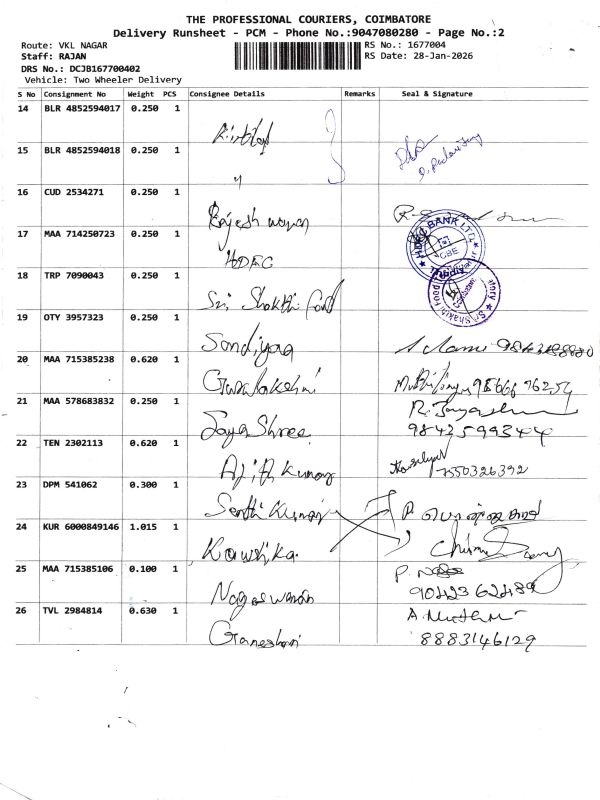 THE PROFESSIONAL COURIERS, COIMBATORE
Delivery Runsheet - PCM - Phone No.:9047080280 - Page No.:2
Route: VKL NAGAR RS No.: 1677004
Staff: RAJAN RS Date: 28-Jan-2026
DRS No.: DCJB167700402
Vehicle: Two Wheeler Delivery
S No Consignment No Weight PCS Consignee Details Remarks Seal & Signature
14 BLR 4852594017 0.250 1
15 BLR 4852594018 0.250 1
"
16 CUD 2534271 0.250 1
Rajesh
17 MAA 714250723 0.250 1
HDFC
HDFC BANK LTD.
CBE
18 TRP 7090043 0.250 1
Sri Shakthi Food
Sri Shakthi Food
19 OTY 3957323 0.250 1
Sandiyaa
20 MAA 715385238 0.620 1
Gurulakshmi
21 MAA 578683832 0.250 1
Jaya Shree
9842599344
22 TEN 2302113 0.620 1
Ajith Kumar 7550326392
23 DPM 541062 0.300 1
Senthil Kumar
24 KUR 6000849146 1.015 1
Kowshika
25 MAA 715385106 0.100 1
Nageswaran
9042362489
26 TVL 2984814 0.630 1
Ganeshan
8883146129